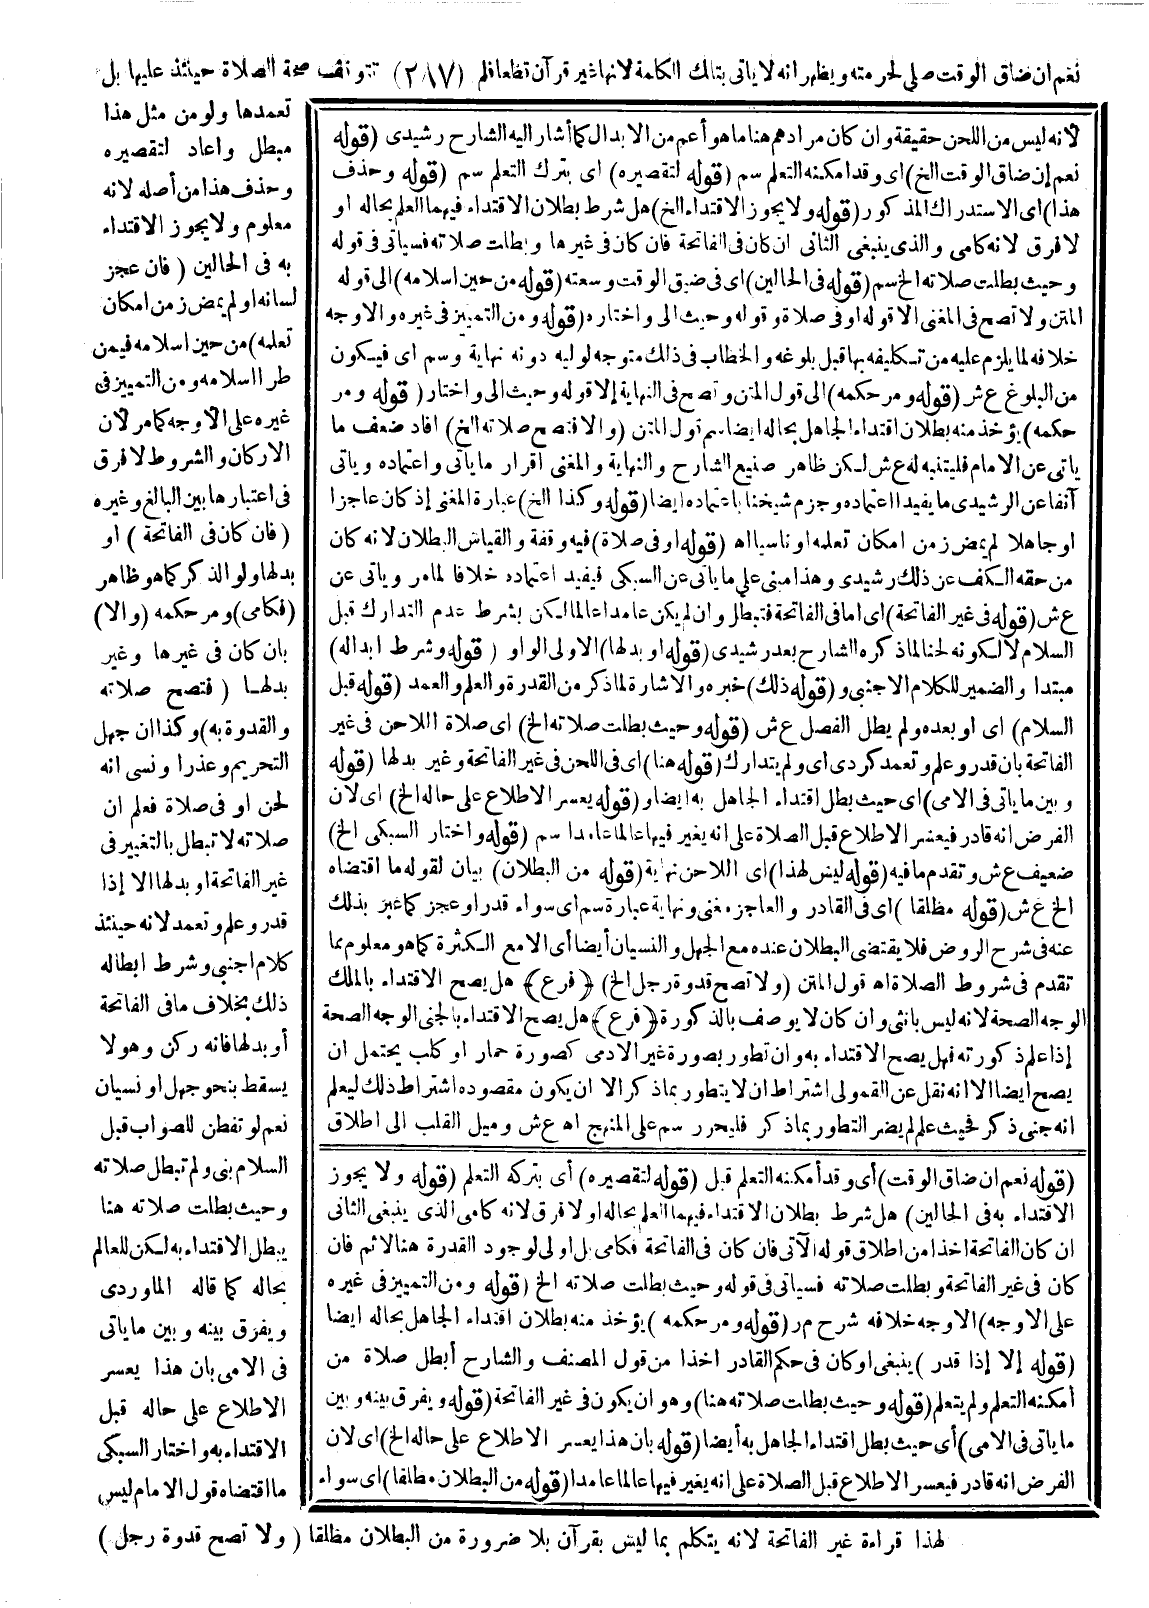 نعم ان ضاق الوقت صلى لحرمته ويظهر انه لا ياتى بتلك الكلمة لانها غير قرآن قطعا فلم (٢٨٧) تتوقف صحة الصلاة حينئذ عليها بل
تعمدها ولو من مثل هذا
مبطل واعاد لتقصيره
وحذف هذا من أصله لانه
معلوم ولا يجوز الاقتداء
به فى الحالين (فان عجز
لسانه او لم يمض زمن امكان
تعلمه) من حين اسلامه فيمن
طرا اسلامه ومن التمييز فى
غيره على الاوجه كما مر لان
الاركان والشروط لا فرق
فى اعتبارها بين البالغ وغيره
(فان كان فى الفاتحة) او
بدلها ولو الذكر كما هو ظاهر
(فكامى) ومر حكمه (والا)
بان كان فى غيرها وغير
بدلها (فتصح صلاته
والقدوة به) وكذا ان جهل
التحريم وعذرا ونسى انه
لحن او فى صلاة فعلم ان
صلاته لا تبطل بالتغيير فى
غير الفاتحة او بدلها الا إذا
قدر وعلم وتعمد لانه حينئذ
كلام اجنبى وشرط ابطاله
ذلك بخلاف ما فى الفاتحة
أو بدلها فانه ركن وهو لا
يسقط بنحو جهل او نسيان
نعم لو تفطن للصواب قبل
السلام بنى ولم تبطل صلاته
وحيث بطلت صلاته هنا
يبطل الاقتداء به لكن للعالم
بحاله كما قاله الماوردى
ويفرق بينه وبين ما ياتى
فى الامى بان هذا يعسر
الاطلاع على حاله قبل
الاقتداء به واختار السبكى
ما اقتضاه قول الامام ليس
لهذا قراءة غير الفاتحة لانه يتكلم بما ليس بقرآن بلا ضرورة من البطلان مطلقا (ولا تصح قدوة رجل)
لانه ليس من اللحن حقيقة وان كان مرادهم هنا ما هو أعم من الابدال كما أشار اليه الشارح رشيدى (قوله
نعم إن ضاق الوقت الخ) اى وقد امكنه التعلم سم (قوله لتقصيره) اى بترك التعلم سم (قوله وحذف
هذا) اى الاستدراك المذكور (قوله ولا يجوز الاقتداء الخ) هل شرط بطلان الاقتداء فيهما العلم بحاله او
لا فرق لانه كامى والذى ينبغى الثانى ان كان فى الفاتحة فان كان فى غيرها وبطلت صلاته فسياتى فى قوله
وحيث بطلت صلاته الخ سم (قوله فى الحالين) اى فى ضيق الوقت وسعته (قوله من حين اسلامه) الى قوله
المتن ولا تصح فى المغنى الا قوله او فى صلاة وقوله وحيث الى واختار (قوله ومن التمييز فى غيره والاوجه
خلافه لما يلزم عليه من تكليفه بها قبل بلوغه والخطاب فى ذلك متوجه لوليه دونه نهاية وسم اى فيكون
من البلوغ ع ش (قوله ومر حكمه) الى قول المتن وتصح فى النهاية إلا قوله وحيث الى واختار (قوله ومر
حكمه) يؤخذ منه بطلان اقتداء الجاهل بحاله ايضا سم قول المتن (والا فتصح صلاته الخ) افاد ضعف ما
ياتى عن الامام فليتنبه له ع ش لكن ظاهر صنيع الشارح والنهاية والمغنى اقرار ما ياتى واعتماده وياتى
آنفا عن الرشيدى ما يفيد اعتماده وجزم شيخنا باعتماده ايضا (قوله وكذا الخ) عبارة المغنى إذ كان عاجزا
او جاهلا لم يمض زمن امكان تعلمه او ناسيا اه (قوله او فى صلاة) فيه وقفة والقياس البطلان لانه كان
من حقه الكف عن ذلك رشيدى وهذا مبنى على ما ياتى عن السبكى فيفيد اعتماده خلافا لما مر وياتى عن
ع ش (قوله فى غير الفاتحة) اى اما فى الفاتحة فتبطل وان لم يكن عامدا عالما لكن بشرط عدم التدارك قبل
السلام لا لكونه لحنا لما ذكره الشارح بعد رشيدى (قوله او بدلها) الاولى الواو (قوله وشرط ابداله)
مبتدا والضمير للكلام الاجنبى و (قوله ذلك) خبره والاشارة لما ذكر من القدرة والعلم والعمد (قوله قبل
السلام) اى او بعده ولم يطل الفصل ع ش (قوله وحيث بطلت صلاته الخ) اى صلاة اللاحن فى غير
الفاتحة بان قدر وعلم وتعمد كردى اى ولم يتدارك (قوله هنا) اى فى اللحن فى غير الفاتحة وغير بدلها (قوله
وبين ما ياتى فى الامى) اى حيث بطل اقتداء الجاهل به ايضا و (قوله يعسر الاطلاع على حاله الخ) اى لان
الفرض انه قادر فيعسر الاطلاع قبل الصلاة على انه يغير فيها عالما عامدا سم (قوله واختار السبكى الخ)
ضعيف ع ش وتقدم ما فيه (قوله ليس لهذا) اى اللاحن نهاية (قوله من البطلان) بيان لقوله ما اقتضاه
الخ ع ش (قوله مطلقا) اى فى القادر والعاجز مغنى ونهاية عبارة سم اى سواء قدر او عجز كما عبر بذلك
عنه فى شرح الروض فلا يقتضى البطلان عنده مع الجهل والنسيان أيضا أى الا مع الكثرة كما هو معلوم بما
تقدم فى شروط الصلاة اه قول المتن (ولا تصح قدوة رجل الخ) ﴿فرع﴾ هل يصح الاقتداء بالملك
الوجه الصحة لانه ليس بانثى وان كان لا يوصف بالذكورة ﴿فرع﴾ هل يصح الاقتداء بالجنى الوجه الصحة
إذا علم ذكورته فهل يصح الاقتداء به وان تطور بصورة غير الادمى كصورة حمار او كلب يحتمل ان
يصح ايضا الا انه نقل عن القمولى اشتراط ان لا يتطور بما ذكر الا ان يكون مقصوده اشتراط ذلك ليعلم
انه جنى ذكر فحيث علم لم يضر التطور بما ذكر فليحرر سم على المنهج اه ع ش وميل القلب الى اطلاق
(قوله نعم ان ضاق الوقت) أى وقد أمكنه التعلم قبل (قوله لتقصيره) أى بتركه التعلم (قوله ولا يجوز
الاقتداء به فى الحالين) هل شرط بطلان الاقتداء فيهما العلم بحاله او لا فرق لانه كامى الذى ينبغى الثانى
ان كان الفاتحة اخذا من اطلاق قوله الآتى فان كان فى الفاتحة فكامى بل اولى لوجود القدرة هنا لا ثم فان
كان فى غير الفاتحة وبطلت صلاته فسياتى فى قوله وحيث بطلت صلاته الخ (قوله ومن التمييز فى غيره
على الاوجه) الاوجه خلافه شرح مر (قوله ومر حكمه) يؤخذ منه بطلان اقتداء الجاهل بحاله ايضا
(قوله إلا إذا قدر) ينبغى او كان فى حكم القادر اخذا من قول المصنف والشارح أبطل صلاة من
أمكنه التعلم ولم يتعلم (قوله وحيث بطلت صلاته هنا) وهو ان يكون فى غير الفاتحة (قوله ويفرق بينه وبين
ما ياتى فى الامى) أى حيث بطل اقتداء الجاهل به أيضا (قوله بان هذا يعسر الاطلاع على حاله الخ) اى لان
الفرض انه قادر فيعسر الاطلاع قبل الصلاة على انه يغير فيها عالما عامدا (قوله من البطلان مطلقا) اى سواء